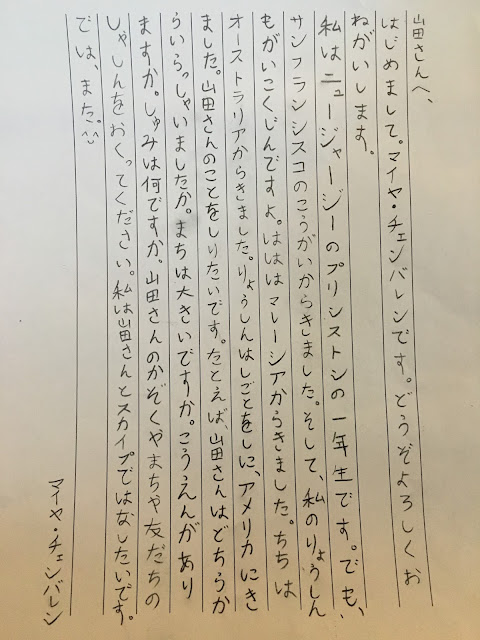 山田さんへ、
はじめまして。マイヤ・チェンバレンです。どうぞよろしくお
ねがいします。
私はニュージャージーのプリンストンの一年生です。でも、
サンフランシスコのこうがいからきました。そして、私のりょうしん
もがいこくじんですよ。はははマレーシアからきました。ちちは
オーストラリアからきました。りょうしんはしごとをしに、アメリカにき
ました。山田さんのことをしりたいです。たとえば、山田さんは、どちらか
らいらっしゃいましたか。まちは大きいですか。こうえんがあり
ますか。しゅみは何ですか。山田さんのかぞくやまちや友だちの
しゃしんをおくってください。私は山田さんとスカイプではなしたいです。
では、また。^^
マイヤ・チェンバレン